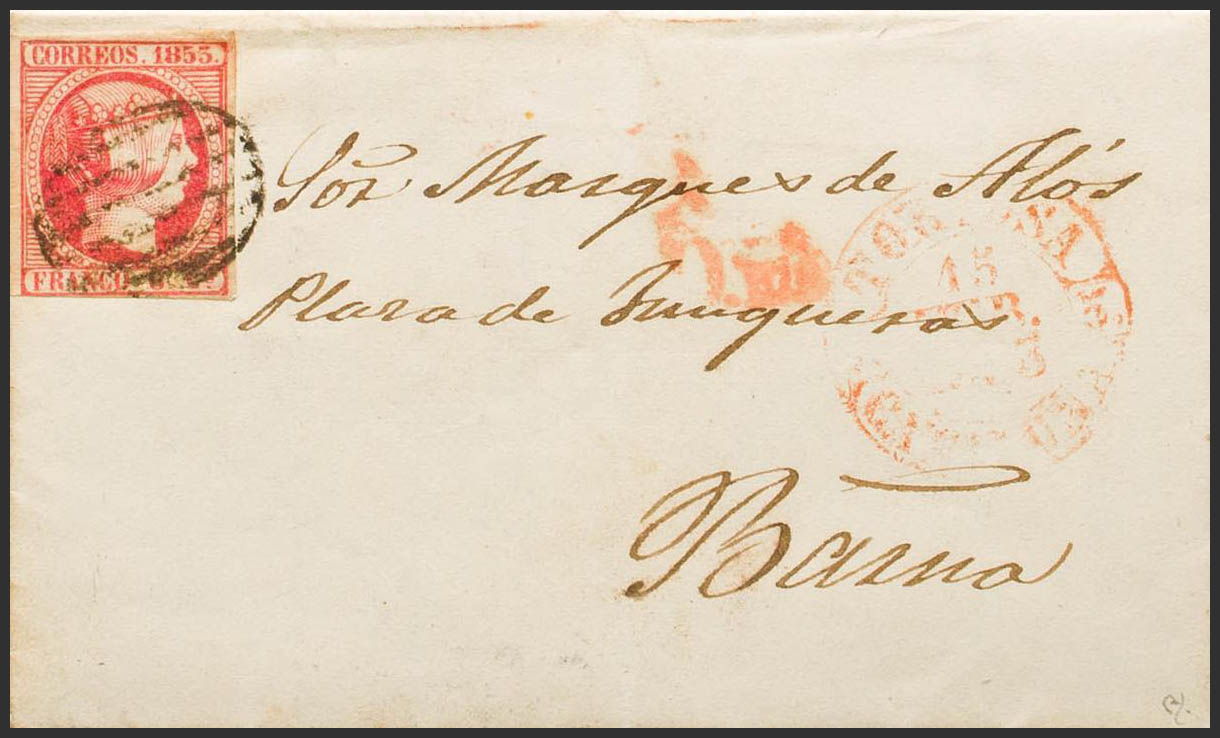 CORREOS. 1853.
FRANCO.
Sor Marques de Alós
Plaza de Junqueras
Barna
15